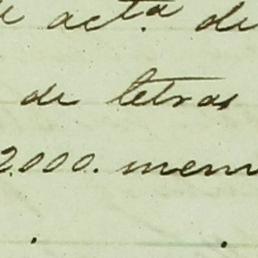 de acta. de
de letras
2.000. men